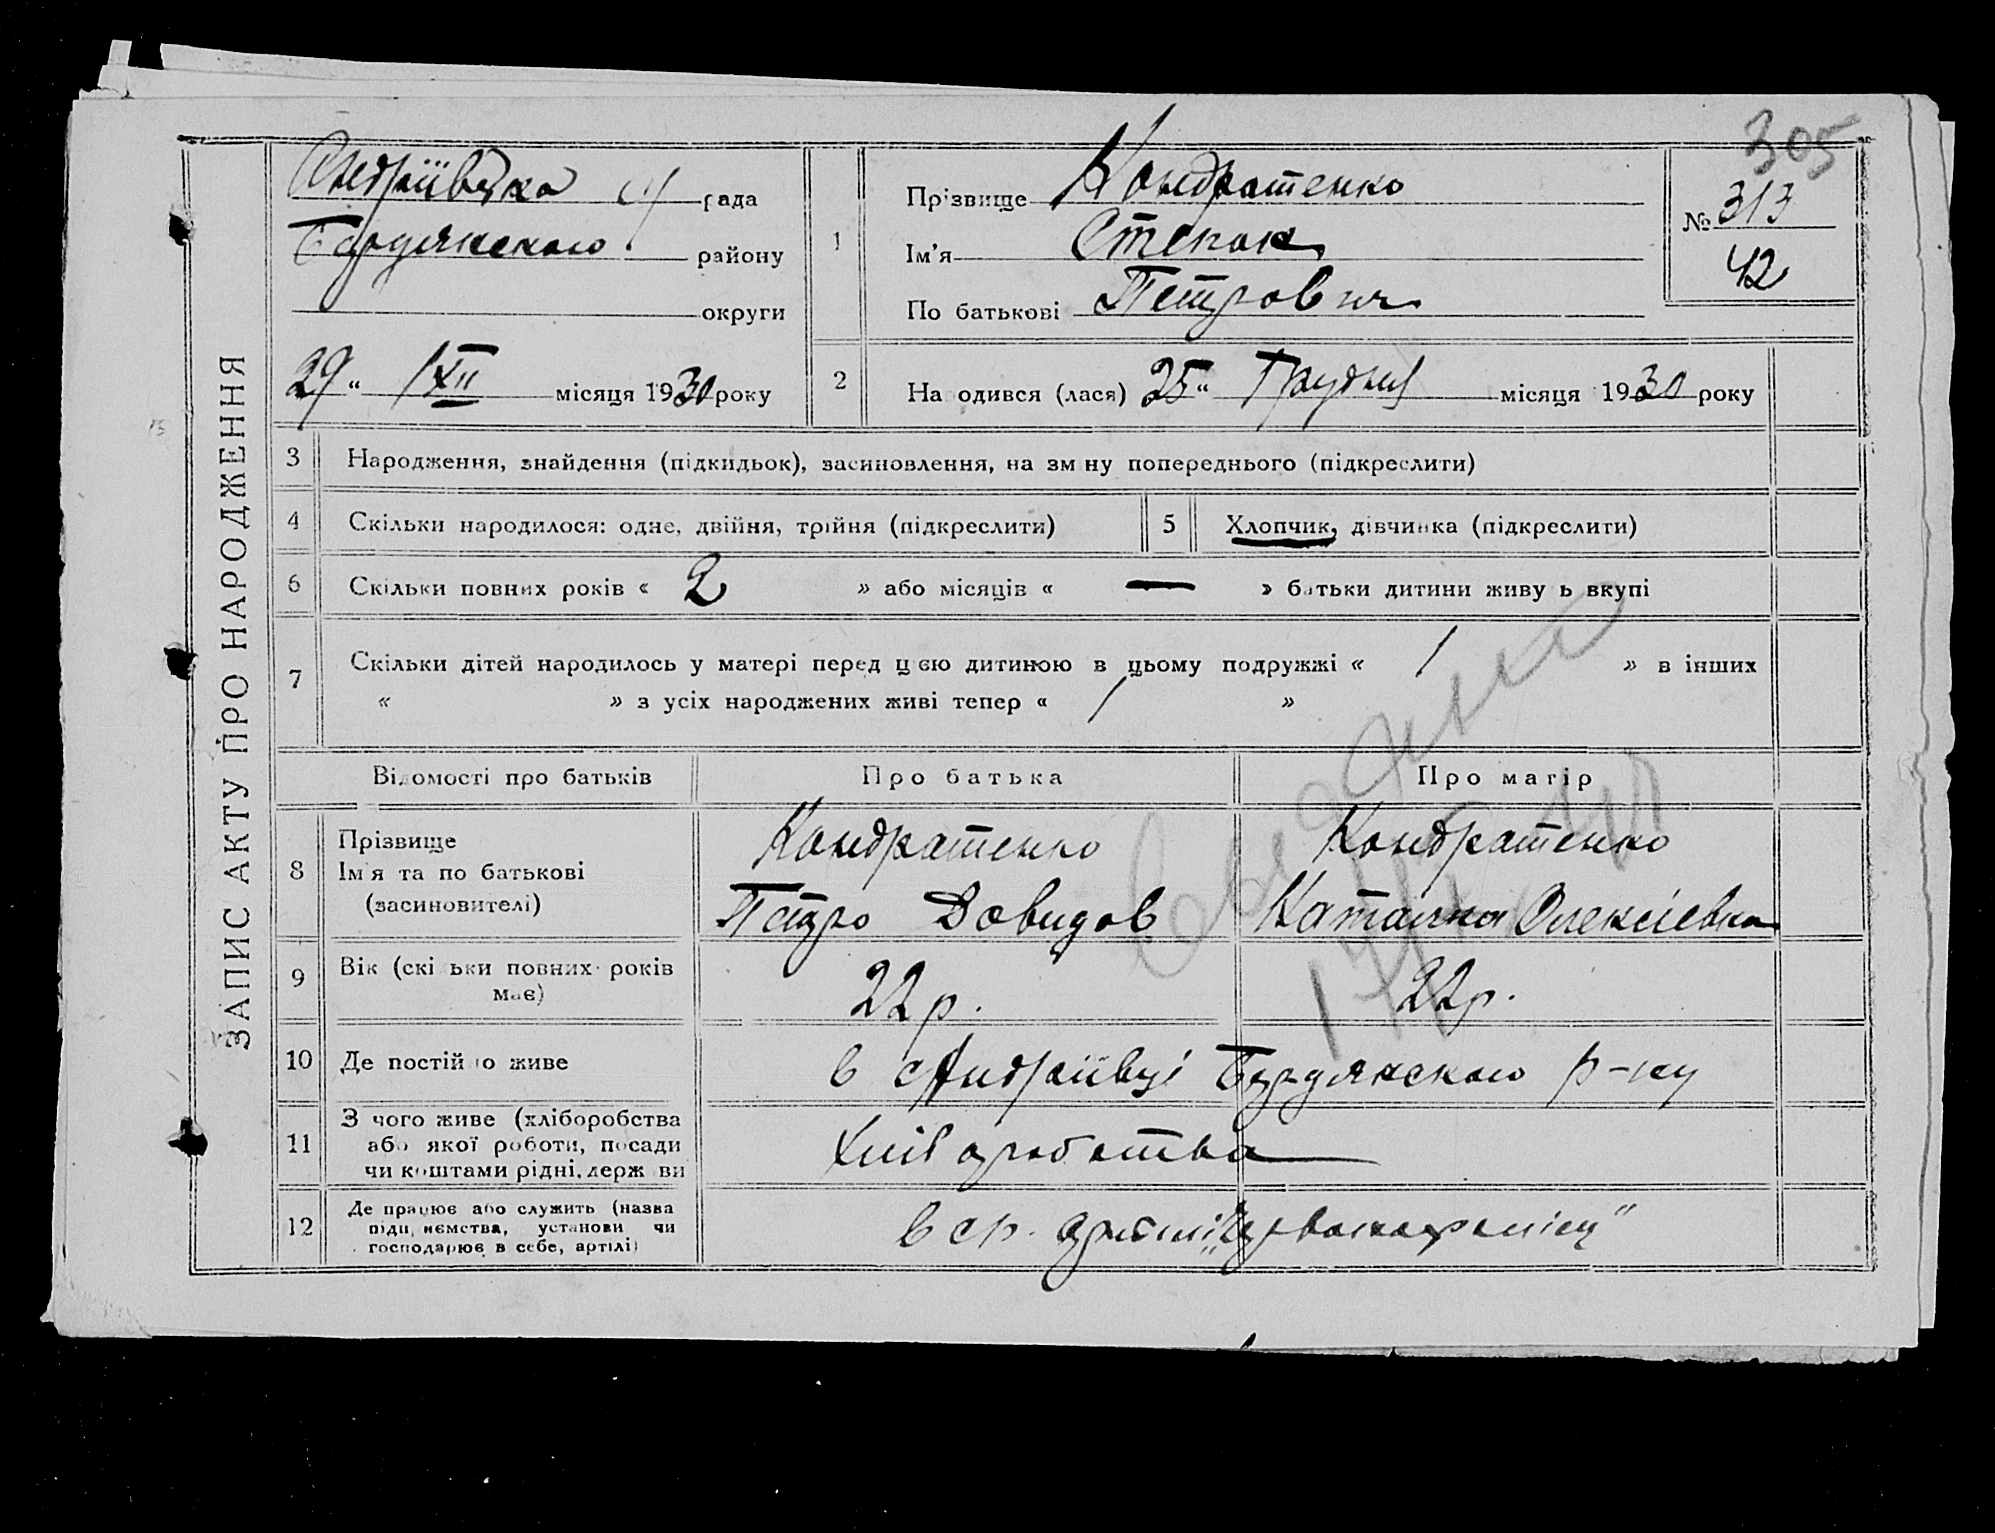 ЗАПИС АКТУ ПРО НАРОДЖЕННЯ
305
Андріївська с/рада
Бердянського району
округи
29 " XII місяця 1930 року
1
Прізвище Кондратенко
Ім'я Степан
По батькові Петрович
№ 313
42
2 На одився (лася) 25 " Грудня місяця 1930 року
3 Народження, знайдення (підкидьок), засиновлення, на зм ну попереднього (підкреслити)
4 Скільки народилося: одне, двійня, трійня (підкреслити) 5 Хлопчик, дівчинка (підкреслити)
6 Скільки повних років « 2 » або місяців « — » батьки дитини живу ь вкупі
7 Скільки дітей народилось у матері перед цією дитиною в цьому подружжі « 1 » в інших
« » з усіх народжених живі тепер « 1 »
Відомості про батьків Про батька Про матір
8 Прізвище
Ім'я та по батькові
(засиновителі)
Кондратенко
Петро Давидов
Кондратенко
Каталіна Олексіевна
9 Вік (скі ьки повних років
має)
22 р. 22 р.
10 Де постій о живе в с Андріївці Бердянського р-ну
11 З чого живе (хліборобства
або якої роботи, посади
чи коштами рідні, держ ви
Хліборобства
12 Де працює або служить (назва
підприємства, установи чи
господарює в себе, артілі)
в ср. артілі